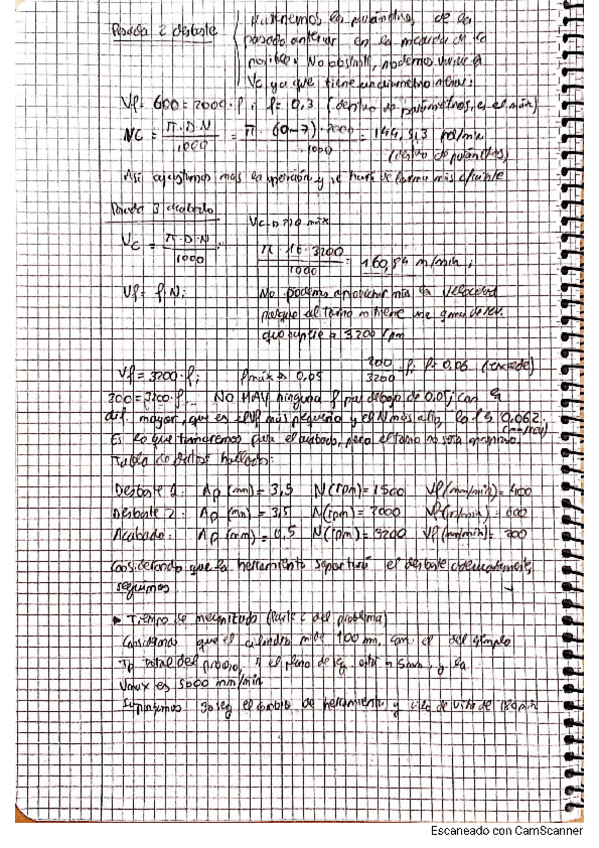 Pasada 2 desbaste
Mantenemos los parámetros de la
pasada anterior en la medida de lo
posible. No obstante, podemos variar la
Vc ya que tiene un diámetro menor:
Vf = 600 = 2000 · f ; f = 0,3 (dentro de parámetros, es el máx)
VC = π · D · N / 1000 = π · (0-7) · 2000 / 1000 = 144,513
(dentro de parámetros)
Así ajustamos más la operación y se hará de forma más eficiente
Pasada 3 acabado
Vc = π · D · N / 1000 ; π · 16 · 3200 / 1000 = 160,84 m/min ;
Vf = f · N ; No podemos aprovechar más la velocidad
porque el torno no tiene una gama de rev.
que supere a 3200 rpm
Vf = 3200 · f ; fmáx → 0,05 200 / 3200 = f ; f = 0,06 (excede)
200 = 3200 · f No HAY ninguna f por debajo de 0,05, con la
def. mayor, que es Vf más pequeño y el N más alto, la f es 0,062
(mm/rev)
Es lo que tomaremos para el acabado, pero el torno no será
Tabla de datos hallados:
Desbaste 1: Ap (mm) = 3,5 N (rpm) = 1500 Vf (mm/min) = 400
Desbaste 2: Ap (mm) = 3,5 N (rpm) = 2000 Vf (m/min) = 600
Acabado: Ap (mm) = 0,5 N (rpm) = 3200 Vf (mm/min) = 200
Considerando que la herramienta soportará el desbaste adecuadamente,
seguimos
► Tiempo de mecanizado (Parte c del problema)
Considerando que el cilindro mide 100 mm, como el del ejemplo
Tp total del el plano de seg. está a 5mm, y la
Vmax es 5000 mm/min
Supongamos 30 seg el cambio de herramienta y vida de 180 min